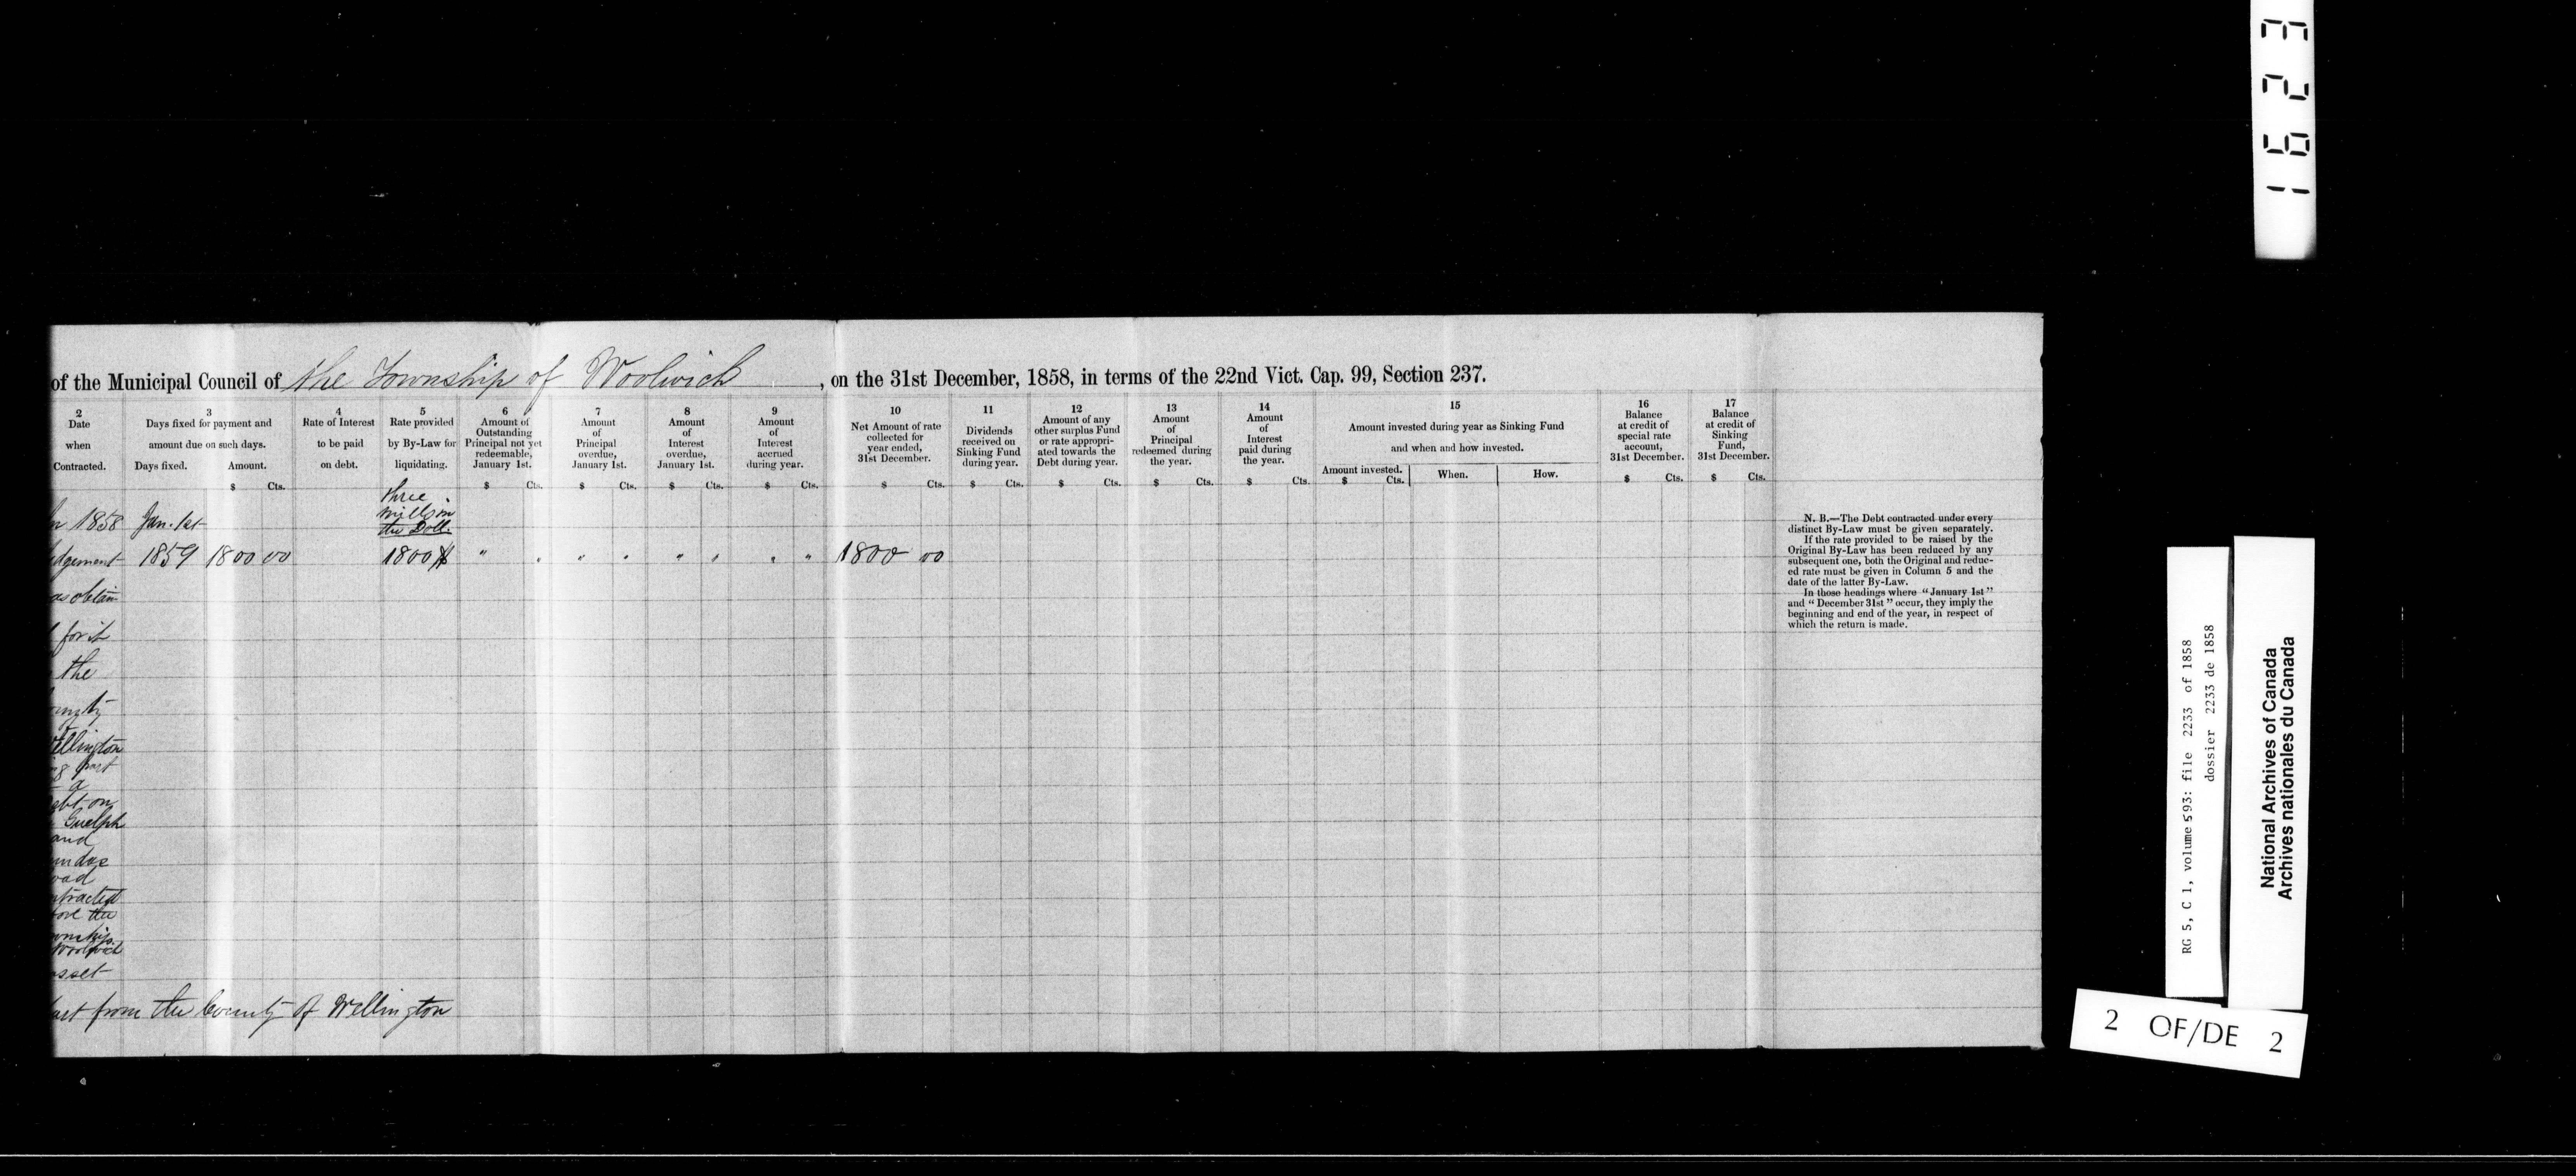 1623
of the Municipal Council of the Township of Woolwich, on the 31st December, 1858, in terms of the 22nd Vict. Cap. 99, Section 237.
2
Date
when
Contracted.
3
Days fixed for payment and
amount due on such days.
Days fixed. Amount.
$ Cts.
4
Rate of Interest
to be paid
on debt.
5
Rate provided
by By-Law for
liquidating.
6
Amount of
Outstanding
Principal not yet
redeemable,
January 1st.
$ Cts.
7
Amount
of
Principal
overdue,
January 1st.
$ Cts.
8
Amount
of
Interest
overdue,
January 1st.
$ Cts.
9
Amount
of
Interest
accrued
during year.
$ Cts.
10
Net Amount of rate
collected for
year ended,
31st December.
$ Cts.
11
Dividends
received on
Sinking Fund
during year.
$ Cts.
12
Amount of any
other surplus Fund
or rate appropri-
ated towards the
Debt during year.
$ Cts.
13
Amount
of
Principal
redeemed during
the year.
$ Cts.
14
Amount
of
Interest
paid during
the year.
$ Cts.
15
Amount invested during year as Sinking Fund
and when and how invested.
Amount invested. When. How.
$ Cts.
16
Balance
at credit of
special rate
account,
31st December.
$ Cts.
17
Balance
at credit of
Sinking
Fund,
31st December.
$ Cts.
three
mills on
the Doll.
1858 Jan. 1st
dgement 1859 1800 00 1800 $ " " " " " " " " 1800 00
as obtain
for it
the
ounty
of
ellington
ng part
a
ebt on
Guelph
and
undas
oad
ntracted
fore the
ownship
Woolwich
asset
art from the County of Wellington
N. B.—The Debt contracted under every
distinct By-Law must be given separately.
If the rate provided to be raised by the
Original By-Law has been reduced by any
subsequent one, both the Original and reduc-
ed rate must be given in Column 5 and the
date of the latter By-Law.
In those headings where “January 1st”
and “December 31st” occur, they imply the
beginning and end of the year, in respect of
which the return is made.
RG 5, C 1, volume 593: file 2233 of 1858
dossier 2233 de 1858
National Archives of Canada
Archives nationales du Canada
2 OF/DE 2